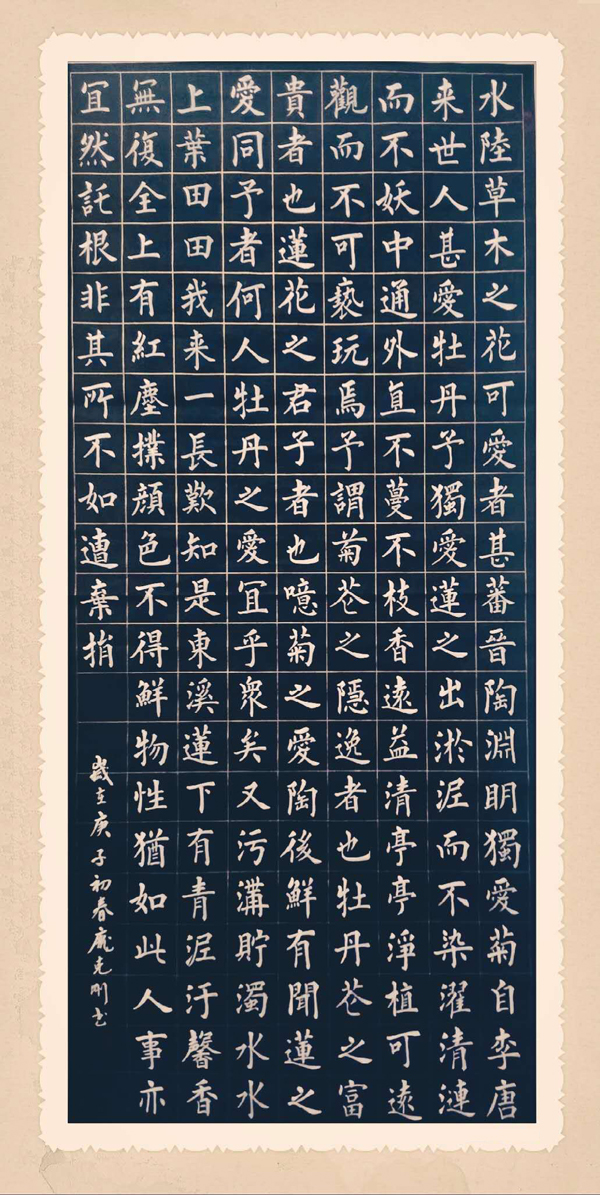 水陸草木之花可愛者甚蕃晉陶淵明獨愛菊自李唐
来世人甚愛牡丹予獨愛蓮之出淤泥而不染濯清漣
而不妖中通外直不蔓不枝香遠益清亭亭淨植可遠
觀而不可褻玩焉予謂菊花之隱逸者也牡丹花之富
貴者也蓮花之君子者也噫菊之愛陶後鮮有聞蓮之
愛同予者何人牡丹之愛宜乎衆矣又污溝貯濁水水
上葉田田我来一長歎知是東溪蓮下有青泥汙馨香
無復全上有紅塵撲顏色不得鮮物性猶如此人事亦
宜然託根非其所不如遭棄捐
歲在庚子初春龐克剛书